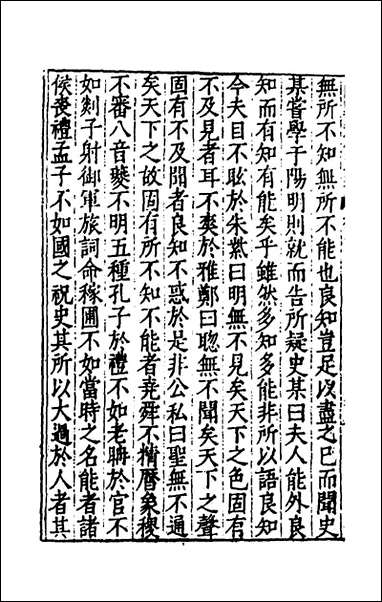 無所不知無所不能也良知豈足以盡之已而聞史
某嘗學于陽明則就而告所疑史某曰夫人能外良
知而有知有能矣乎雖然多知多能非所以語良知
今夫目不眩於朱紫曰明無不見矣天下之色固有
不及見者耳不爽於雅鄭曰聰無不聞矣天下之聲
固有不及聞者良知不惑於是非公私曰聖無不通
矣天下之故固有所不知不能者堯舜不精曆象稷
不審八音夔不明五種孔子於禮不如老聃於官不
如剡子射御軍旅詞命稼圃不如當時之名能者諸
侯喪禮孟子不如國之祝史其所以大過於人者其